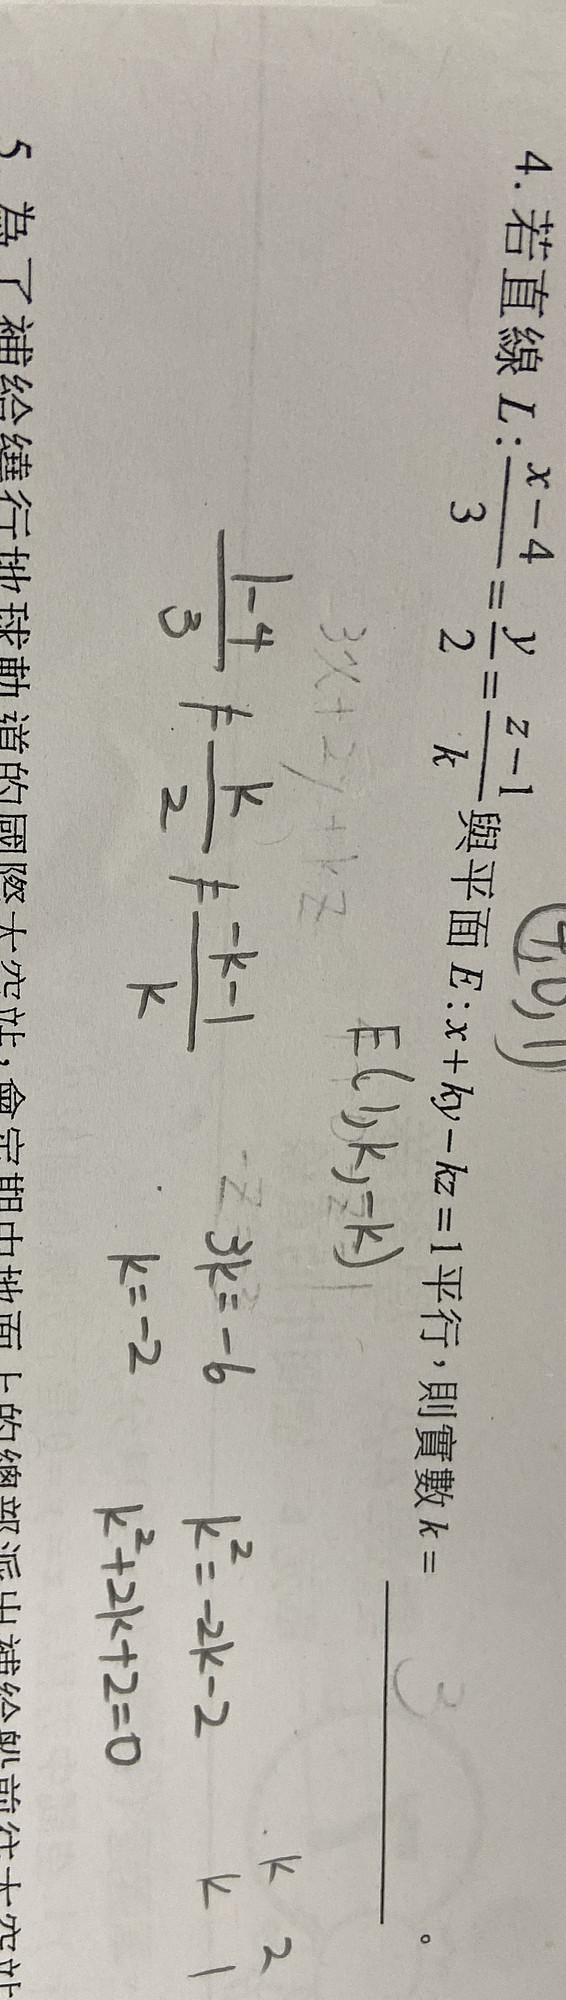 (4,0,1)
4. 若直線 L: (x-4)/3 = y/2 = (z-1)/k 與平面 E: x+ky-kz=1 平行,則實數 k= 。
3
E(1,k,-k)
3x+2y+kz
(1-4)/3 ≠ k/2 ≠ (-k-1)/k
3k=-6
k=-2
k²=-2k-2
k²+2k+2=0
k 2
k 1
5. 為了補給繞行地球軌道的國際太空站,會定期由地面上的總部派出補給船前往太空站